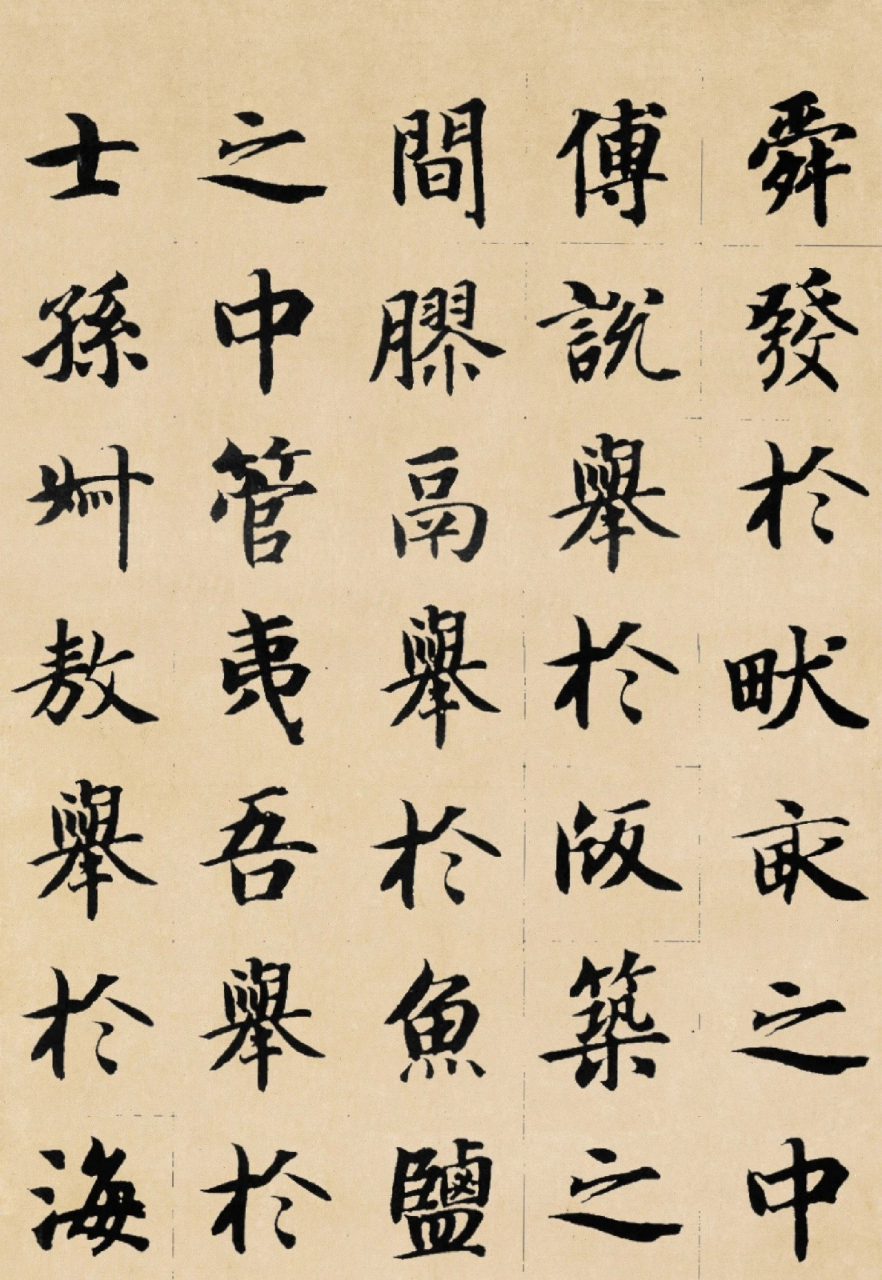 舜發於畎畝之中
傅說舉於版築之
間膠鬲舉於魚鹽
之中管夷吾舉於
士孫叔敖舉於海